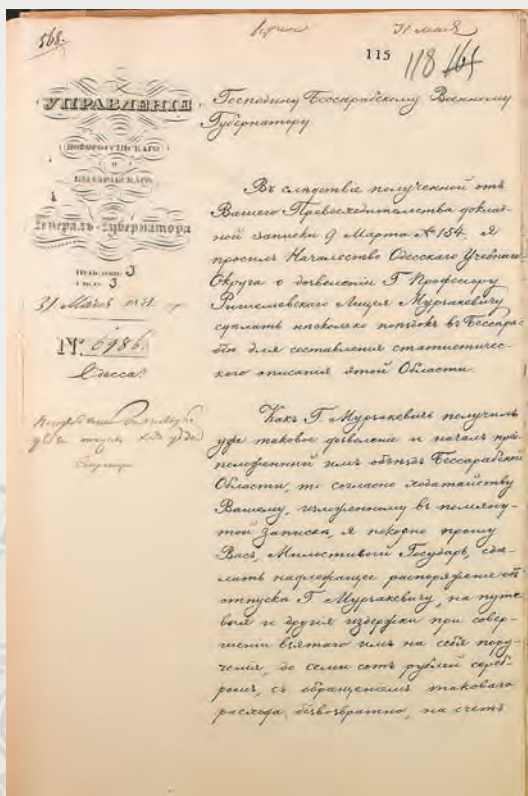 568.
31 мая
115
118
УПРАВЛЕНІЯ
НОВОРОССІЙСКАГО
И
БЕССАРАБСКАГО
Генералъ-Губернатора
3
3.
31 Маія
№ 6986.
Одесса.
Господину Бессарабскому Военному
Губернатору.
Въ следствіе полученной отъ
Вашего Превосходительства доклад-
ной записки 9 Марта № 154, я
просилъ Начальство Одесскаго Учебнаго
Округа о дозволеніи Г. Профессору
Ришельевскаго Лицея Мурзакевичу
сдѣлать нѣсколько поѣздокъ въ Бессара-
бію для составленія статистичес-
каго описанія этой Области.
Какъ Г. Мурзакевичъ получилъ
уже таковое дозволеніе и началъ пред-
положенный имъ объѣздъ Бессарабской
Области, то согласно ходатайству
Вашему, изложенному въ помяну-
той запискѣ, я покорно прошу
Васъ, Милостивый Государь, сдѣ-
лать надлежащее распоряженіе объ
отпускѣ Г. Мурзакевичу, на путе-
выя и другія издержки при совер-
шеніи взятаго имъ на себя пору-
ченія, до семи сотъ рублей сереб-
ромъ, съ обращеніемъ таковаго
расхода, безвозвратно, на счетъ